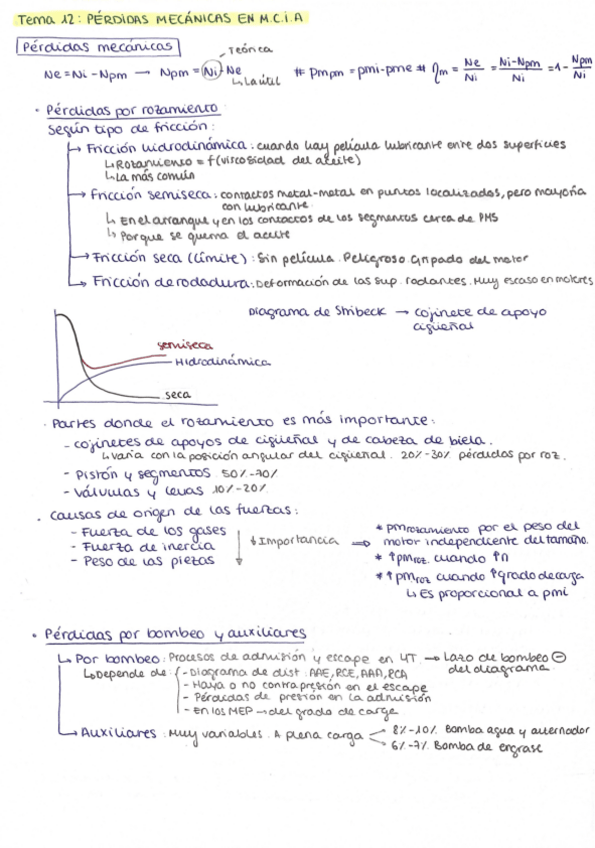 Tema 12: PÉRDIDAS MECÁNICAS EN M.C.i.A
Pérdidas mecánicas
Ne = Ni - Npm → Npm = Ni - Ne
Teórica
La útil
# pmpm = pmi - pme # ηm = Ne/Ni = Ni-Npm/Ni = 1 - Npm/Ni
· Pérdidas por rozamiento
Según tipo de fricción:
→ Fricción hidrodinámica: cuando hay película lubricante entre dos superficies
↳ Rozamiento = f(viscosidad del aceite)
↳ La más común
→ Fricción semiseca: contactos metal-metal en puntos localizados, pero mayoría
con lubricante.
↳ En el arranque y en los contactos de los segmentos cerca de PMS
↳ Porque se quema el aceite
→ Fricción seca (límite): Sin película. Peligroso. Gripado del motor
→ Fricción de rodadura: Deformación de las sup. rodantes. Muy escaso en motores
Diagrama de Stribeck → cojinete de apoyo
cigüeñal
semiseca
Hidrodinámica
seca
· Partes donde el rozamiento es más importante:
- cojinetes de apoyos de cigüeñal y de cabeza de biela.
↳ varía con la posición angular del cigüeñal. 20%-30% pérdidas por roz.
- Pistón y segmentos 50%-70%
- válvulas y levas 10%-20%
· causas de origen de las fuerzas:
- Fuerza de los gases
- Fuerza de inercia
- Peso de las piezas
↓ Importancia
⇒ * pmrozamiento por el peso del
motor independiente del tamaño.
* ↑pmroz. cuando ↑n
* ↑pmroz cuando ↑grado de carga
↳ Es proporcional a pmi
· Pérdidas por bombeo y auxiliares
↳ Por bombeo: Procesos de admisión y escape en 4T. → Lazo de bombeo ⊖
del diagrama.
↳ Depende de: - Diagrama de dist: AAE, RCE, AAA, RCA
- Haya o no contrapresión en el escape
- Pérdidas de presión en la admisión
- En los MEP → del grado de carga
→ Auxiliares: Muy variables. A plena carga
8%-10% Bomba agua y alternador
6%-7% Bomba de engrase